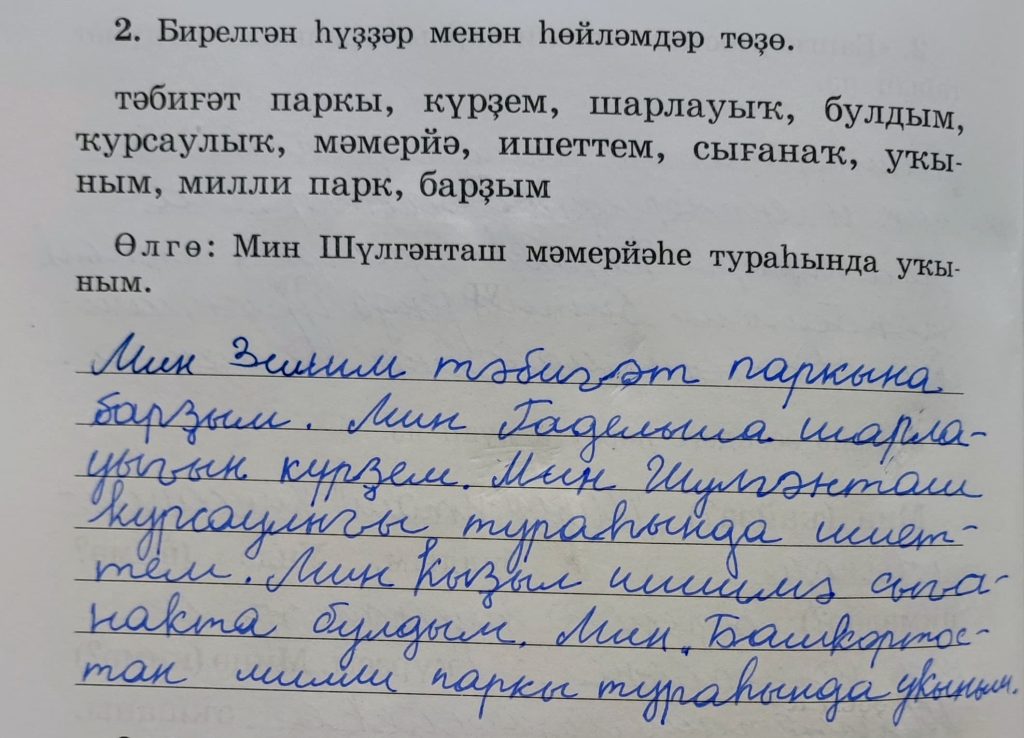 2. Бирелгән һүҙҙәр менән һөйләмдәр төҙө.
тәбиғәт паркы, күрҙем, шарлауыҡ, булдым,
ҡурсаулыҡ, мәмерйә, ишеттем, сығанаҡ, уҡы-
ным, милли парк, барҙым
Өлгө: Мин Шүлгәнташ мәмерйәһе тураһында уҡы-
ным.
Мин Зилим тәбиғәт паркына
барҙым. Мин Гаделша шарла-
уығын күрҙем. Мин Шүлгәнташ
ҡурсаулығы тураһында ишет-
тем. Мин Ҡыҙыл шишмә сыға-
наҡта булдым. Мин Башкортос-
тан милли паркы тураһында уҡыным.